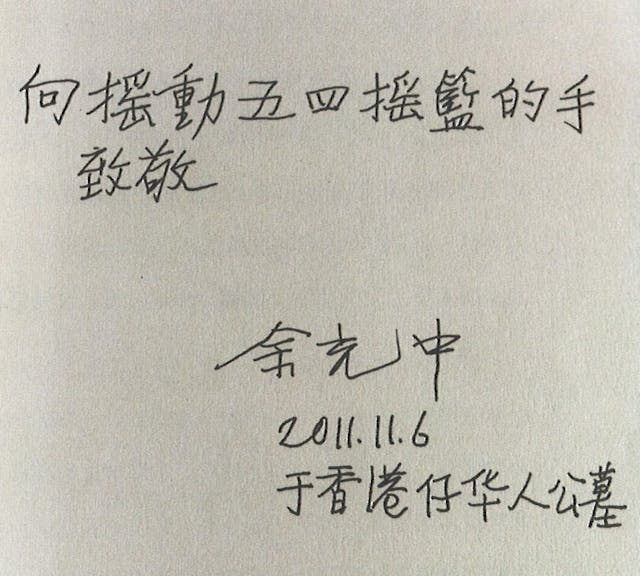 向摇動五四摇籃的手
致敬
余光中
2011.11.6
于香港仔华人公墓